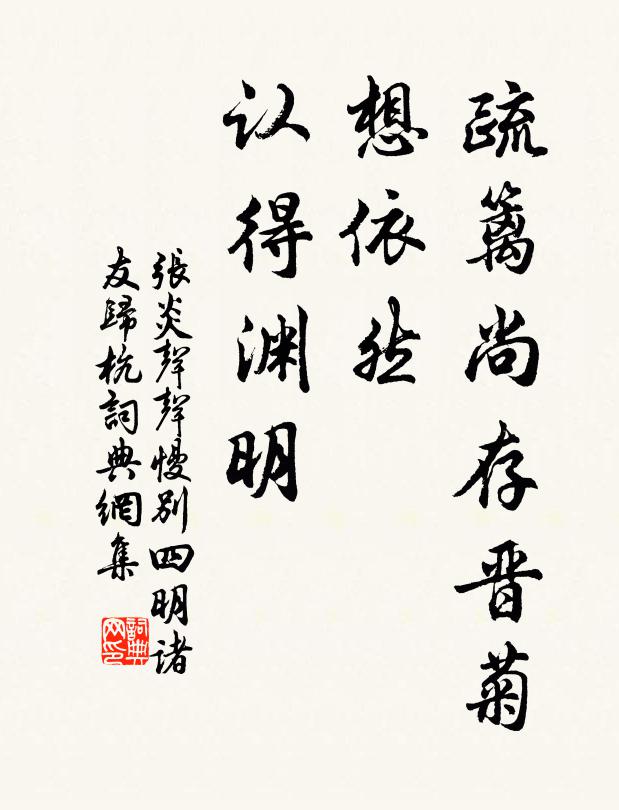 疏籬尚存晋菊
想依然
认得渊明
張炎聲聲慢别四明諸
友歸杭詞典網集
詞典
网印